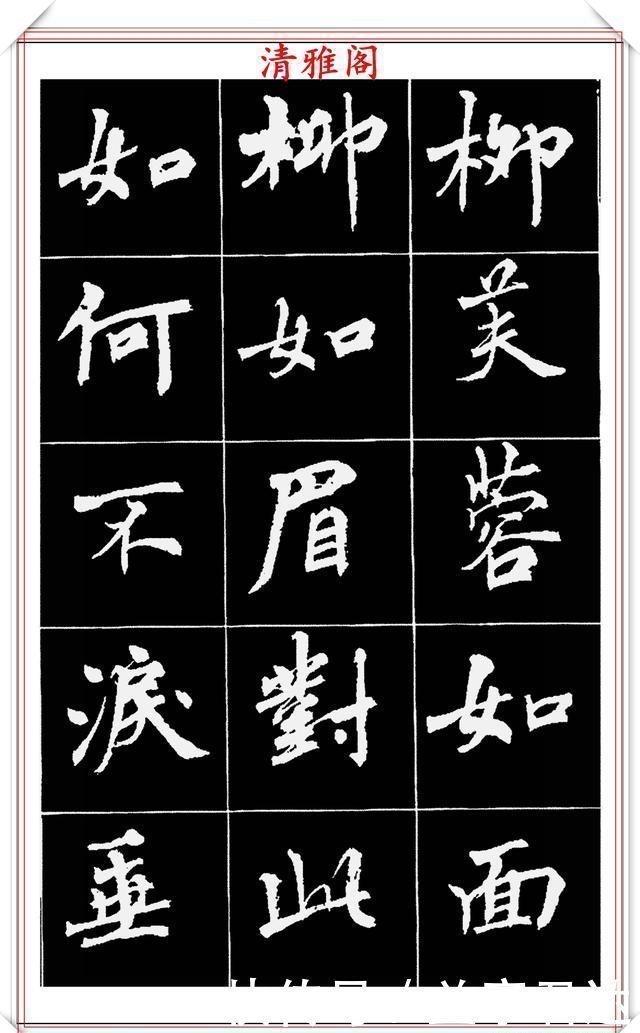 清雅阁
柳芙蓉如面
柳如眉對此
如何不淚垂